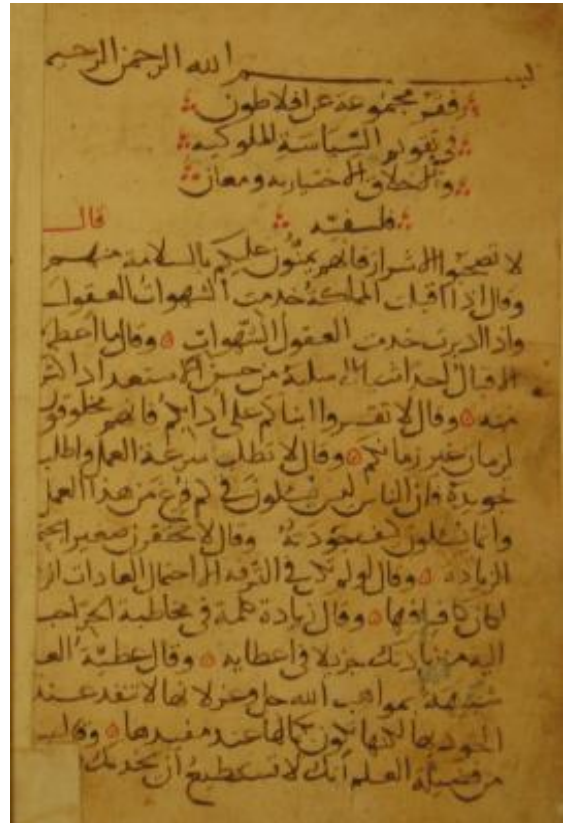 بسم الله الرحمن الرحيم
فقر مجموعة عن افلاطون
في تقويم السياسة الملوكيه
والاخلاق الاختياريه ومعان
فلسفيه قال
لا تصحبوا الاشرار فانهم يمنون عليكم بالسلامة منهم
وقال اذا اقبلت المملكة خدمت الشهوات العقول
واذا ادبرت خدمت العقول الشهوات وقال
الاقبال من حسن الاستعداد
منه وقال لا تقسروا ابناكم على ادابكم فانهم مخلوقون
لزمان غير زمانكم وقال لا تطلب سرعة العمل واطلب
تجويده فان الناس ليس يسلون في كم فرغ من هذا العمل
وانما يسلون كيف جودته وقال لا تحقرن صغيرا
الزياده وقال لو لم في الترفه الا احتمال العادات
لكان كافيا فيها وقال زيادة كلمة في مخاطبة الحر احب
اليه من زيادتك جزيلا في اعطايه وقال عطية
شبيهة بمواهب الله جل وعز لانها لا تنفد عند
الجود بها لكنها تكون بكمالها عند مفيدها وقال
من فضيلة العلم انك لا تستطيع ان يخدمك